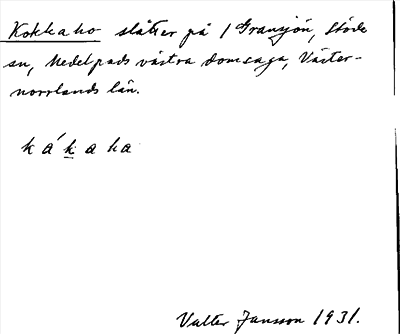 Kokkaho slåtter på 1 Gransjön, Stöde
sn, Medelpads västra domsaga, Väster-
norrlands län.
kák̲aha
Valter Jansson 1931.